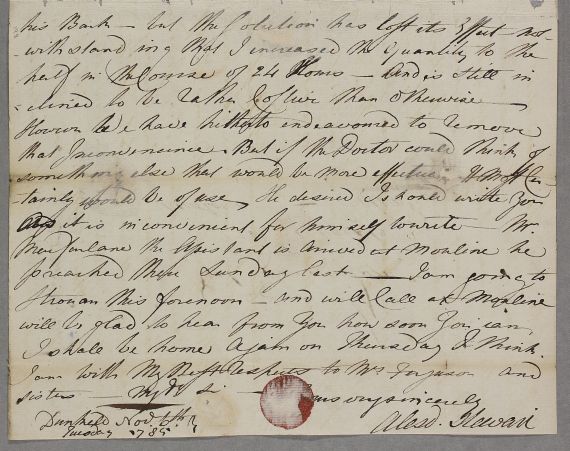 his Bark – but the Solution has lost its Effect not-
withstanding that I increased the Quantity to the
half in the Course of 24 Hours – And is still in
clined to be rather Costive than otherwise –
However We have hitherto endeavoured to remove
that Inconvenience. But if the Doctor could think of
something else that would be more effectual it Most Cer-
tainly would be of use. He desired I should write You
as it is inconvenient for himself to write – Mr.
Macfarlane the Assistant is arrived at Mouline he
preached there Sunday last – I am going to
Strowan this forenoon – and will Call at Mouline
will be glad to hear from You how soon You can,
I shall be home again on Thursday I think.
I am with My Best respects to Mrs. Ferguson and
sisters – My Dr Sir – Yours very sincerely
Dunkeld Novr. 
Tuesday 1785
Alexr. Stewart